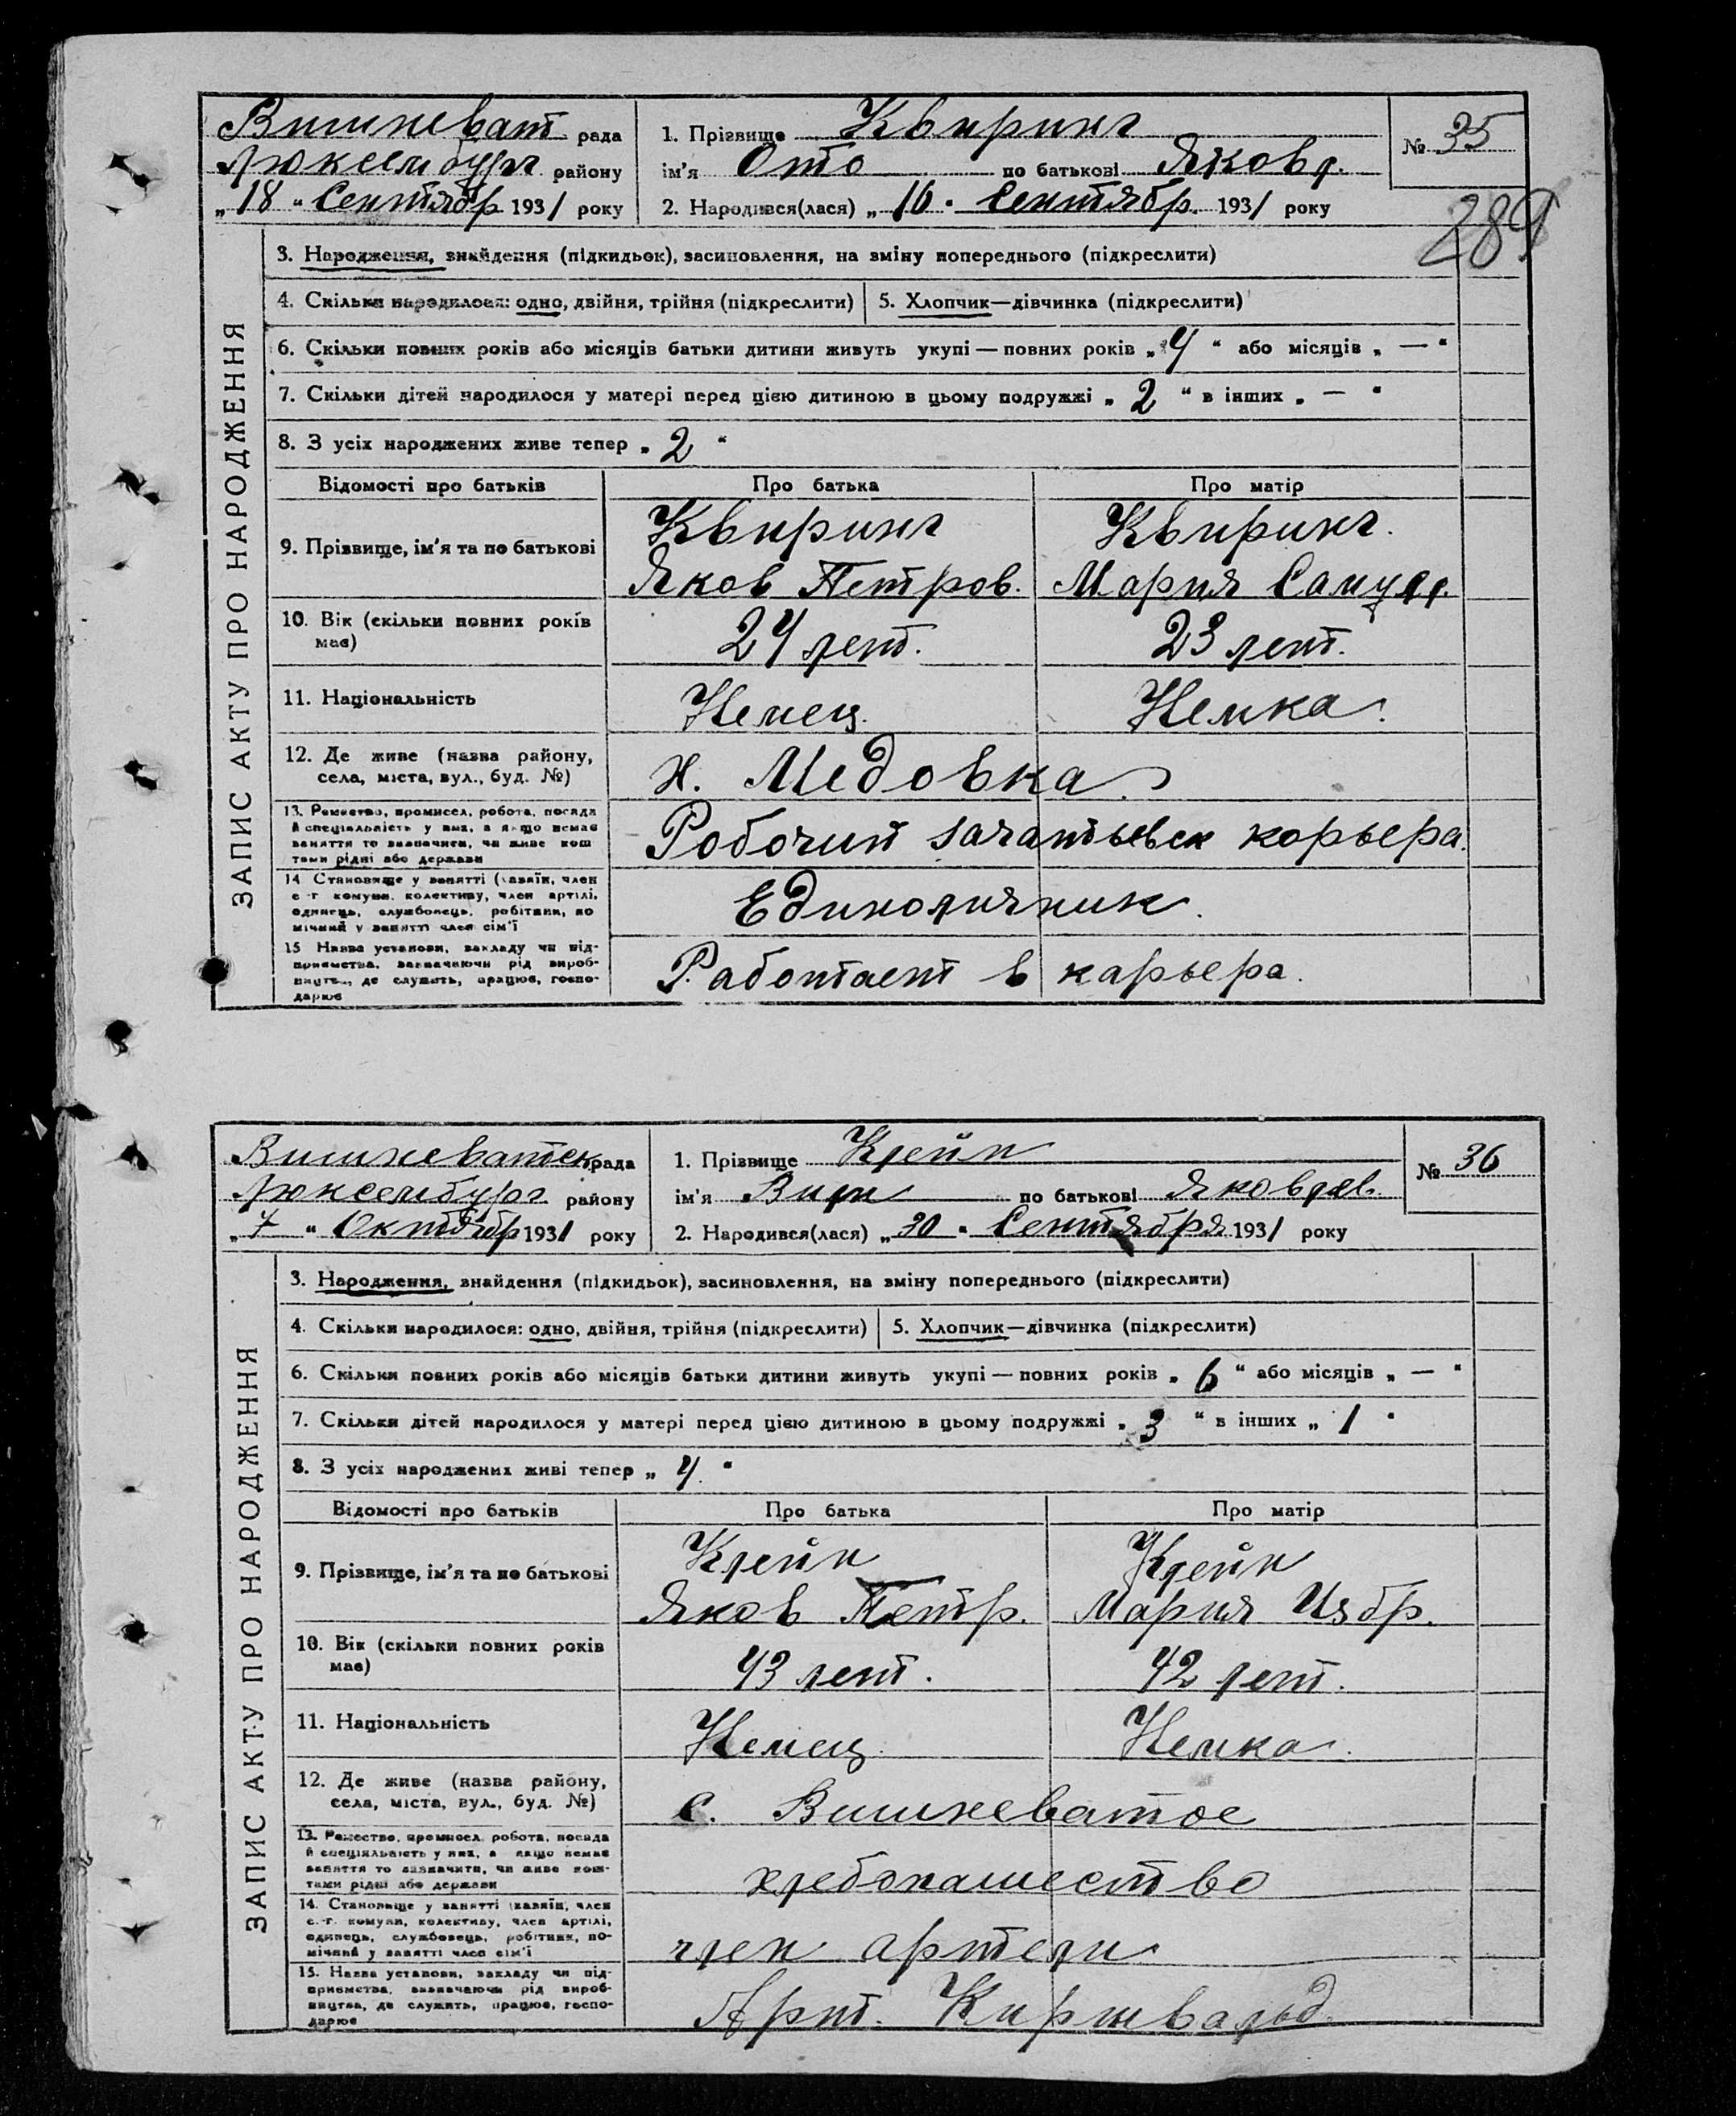 Вишневат рада
Люксембург району
„18 “ Сентябр 1931 року
1. Прізвище Квиринг
ім'я Ото по батькові Яковл.
2. Народився(лася) „ 16 “ Сентябр. 1931 року
№ 35
289
ЗАПИС АКТУ ПРО НАРОДЖЕННЯ
3. Народження, знайдення (підкидьок), засиновлення, на зміну попереднього (підкреслити)
4. Скільки народилося: одно, двійня, трійня (підкреслити)
5. Хлопчик—дівчинка (підкреслити)
6. Скільки повних років або місяців батьки дитини живуть укупі — повних років „ 4 “ або місяців „ — “
7. Скільки дітей народилося у матері перед цією дитиною в цьому подружжі „ 2 “ в інших „ — “
8. З усіх народжених живе тепер „ 2 “
Відомості про батьків
Про батька
Про матір
9. Прізвище, ім'я та по батькові
Квиринг
Яков Петров.
Квиринг.
Мария
10. Вік (скільки повних років має)
24 лет.
23 лет.
11. Національність
Немец.
Немка.
12. Де живе (назва району,
села, міста, вул., буд. №)
х. Медовка
13. Ремество, промисел, робота, посада
й спеціяльність у них, а якщо немає
заняття то визначити, чи живе кош
тами рідні або держави
Робочий карьера.
14 Становище у занятті (хазяїн, член
с.-г комуни, колективу, член артілі,
одинець, службовець, робітник, по
мічний у занятті член сім'ї
Единоличник.
15 Назва установи, закладу чи під-
приємства, зазначаючи рід вироб-
ництва, де служить, працює, госпо-
дарює
Работает в карьера.
Вишневатск рада
Люксембург району
„ 7 “ Октябр 1931 року
1. Прізвище Клейн
ім'я Вили по батькові Яковлев.
2. Народився(лася) „ 30 “ Сентября 1931 року
№ 36
ЗАПИС АКТУ ПРО НАРОДЖЕННЯ
3. Народження, знайдення (підкидьок), засиновлення, на зміну попереднього (підкреслити)
4. Скільки народилося: одно, двійня, трійня (підкреслити)
5. Хлопчик—дівчинка (підкреслити)
6. Скільки повних років або місяців батьки дитини живуть укупі — повних років „ 6 “ або місяців „ — “
7. Скільки дітей народилося у матері перед цією дитиною в цьому подружжі „ 3 “ в інших „ 1 “
8. З усіх народжених живі тепер „ 4 “
Відомості про батьків
Про батька
Про матір
9. Прізвище, ім'я та по батькові
Клейн
Яков Петр.
Клейн
Мария Избр.
10. Вік (скільки повних років
має)
43 лет.
42 лет.
11. Національність
Немец.
Немка.
12. Де живе (назва району,
села, міста, вул., буд. №)
с. Вишневатое
13. Ремество, промисел, робота, посада
й спеціяльність у них, а якщо немає
заняття то зазначити, чи живе кош-
тами рідні або держави
хлебопашество
14. Становище у занятті (хазяїн, член
с.-г. комуни, колективу, член артілі,
одинець, службовець, робітник, по-
мічний у занятті член сім'ї
член артели
15. Назва установи, закладу чи під-
приємства, зазначаючи рід вироб-
ництва, де служить, працює, госпо-
дарює
Арт. Киршвальд.